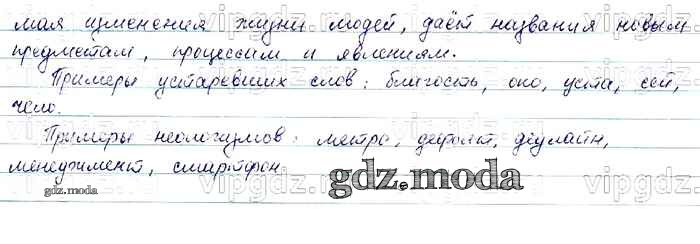 мая изменения жизни людей, даёт названия новым
предметам, процессам и явлениям.
Примеры устаревших слов: благость, око, уста, сей,
чело.
Примеры неологизмов: метро, дефолт, деулайн,
менеджмент, смартфон
gdz.moda
gdz.moda